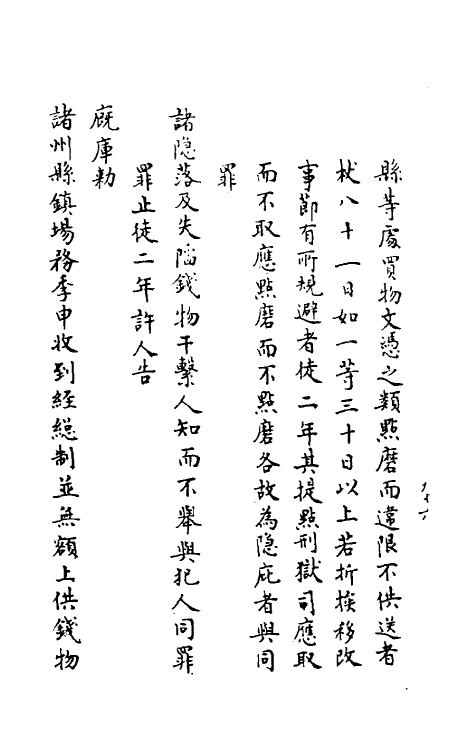 縣等處買物文憑之類點磨而違限不供送者
杖八十一日加一等三十日以上若折換移改
事節有所規避者徒二年其提點刑獄司應取
而不取應點磨而不點磨各故為隱庇者與同
罪
諸隱落及失陷錢物干繫人知而不舉與犯人同罪
罪止徒二年許人告
廐庫勑
諸州縣鎮場務季申收到經總制並無額上供錢物